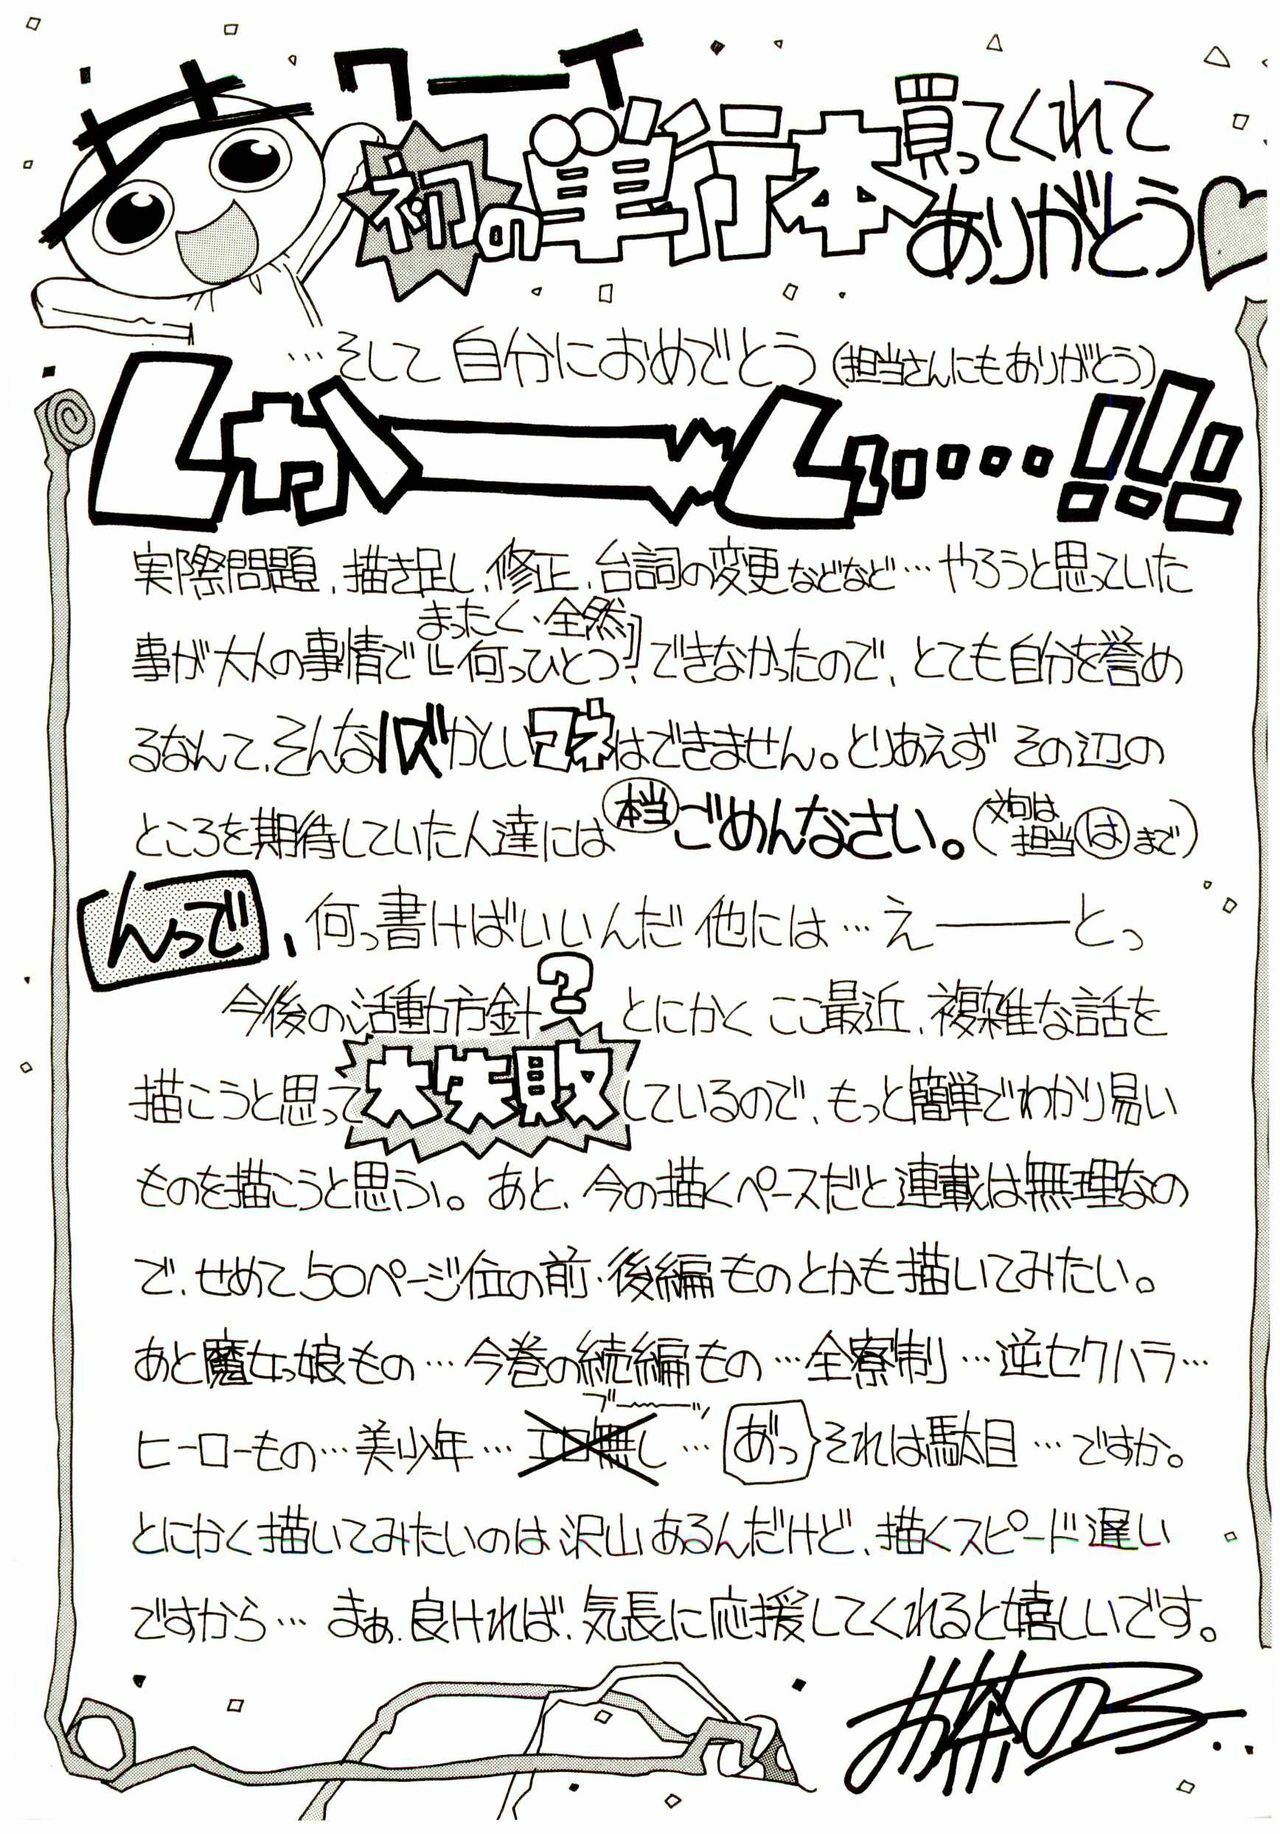 ワーイ
初の単行本買ってくれて
ありがとう♡
…そして自分におめでとう(担当さんにもありがとう)
しかーーしぃ……!!!
実際問題、描き足し、修正、台詞の変更などなど…やろうと思っていた
事が大人の事情で『何っひとつ』できなかったので、とても自分を誉め
まったく・全然
るなんて、そんなハズかしいマネはできません。とりあえずその辺の
ところを期待していた人達には本当ごめんなさい。(文句は担当はまで)
んっで、何っ書けばいいんだ他には…えーーとっ
今後の活動方針?とにかくここ最近、複雑な話を
描こうと思って大失敗しているので、もっと簡単でわかり易い
ものを描こうと思うぅ。あと、今の描くペースだと連載は無理なの
で、せめて50ページ位の前・後編ものとかも描いてみたい。
あと魔女っ娘もの…今巻の続編もの…全寮制…逆セクハラ…
ブーーッ
ヒーローもの…美少年…エロ無し…あ゛っそれは駄目…ですか。
とにかく描いてみたいのは沢山あるんだけど、描くスピード遅い
ですから…まぁ、良ければ、気長に応援してくれると嬉しいです。
お茶のころ